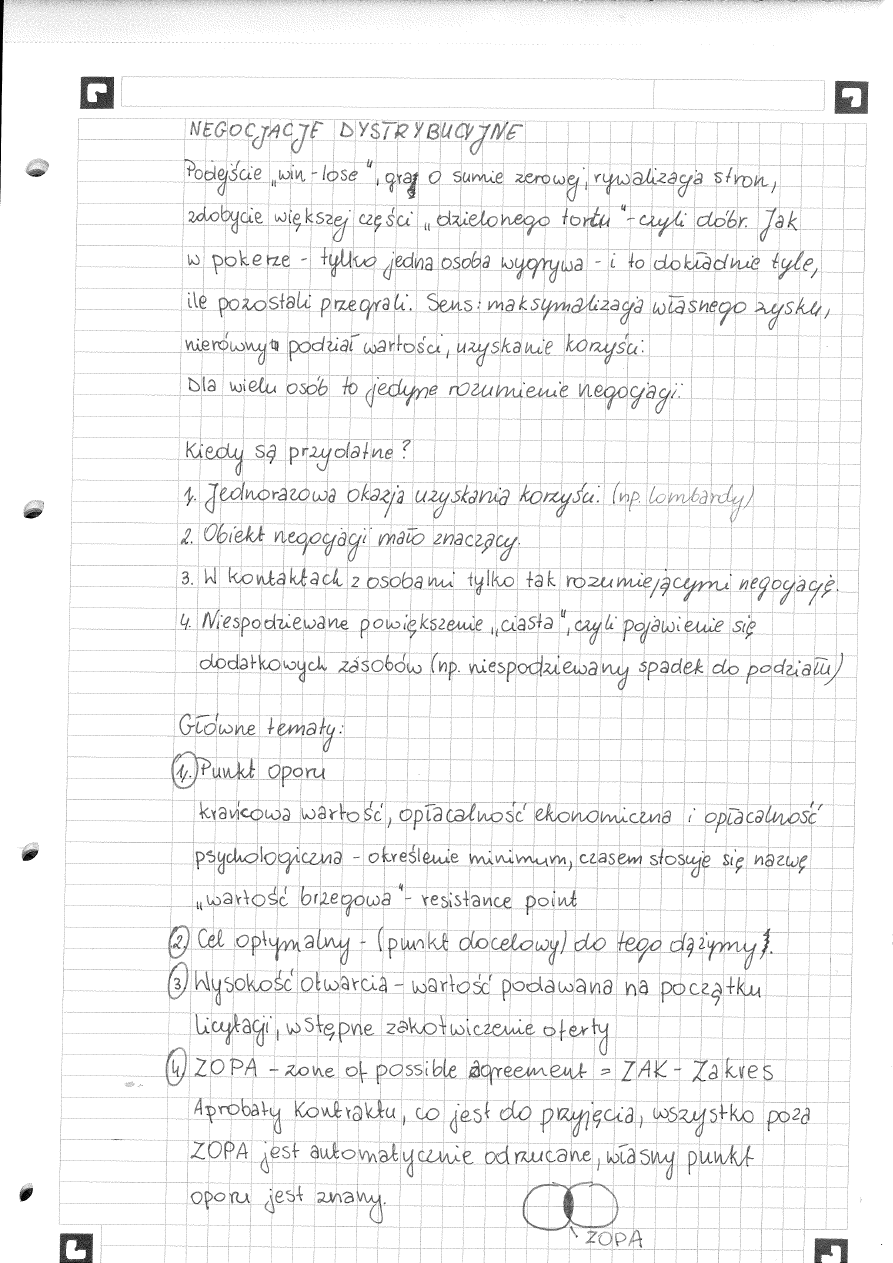 NEGOCJACJE DYSTRYBUCYJNE
Podejście „win-lose", gra o sumie zerowej, rywalizacja stron,
zdobycie większej części „dzielonego tortu"-czyli dóbr. Jak
w pokerze - tylko jedna osoba wygrywa - i to dokładnie tyle,
ile pozostali przegrali. Sens: maksymalizacja własnego zysku,
nierówny podział wartości, uzyskanie korzyści.
Dla wielu osób to jedyne rozumienie negocjacji.
Kiedy są przydatne?
1. Jednorazowa okazja uzyskania korzyści. (np. lombardy)
2. Obiekt negocjacji mało znaczący.
3. W kontaktach z osobami tylko tak rozumiejącymi negocjację.
4. Niespodziewane powiększenie „ciasta", czyli pojawienie się
dodatkowych zasobów (np. niespodziewany spadek do podziału)
Główne tematy:
1. Punkt oporu
krańcowa wartość, opłacalność ekonomiczna i opłacalność
psychologiczna - określenie minimum, czasem stosuje się nazwę
„wartość brzegowa" - resistance point
2. Cel optymalny - (punkt docelowy) do tego dążymy.
3. Wysokość otwarcia - wartość podawana na początku
licytacji, wstępne zakotwiczenie oferty
4. ZOPA - zone of possible agreement = ZAK - Zakres
Aprobaty Kontraktu, co jest do przyjęcia, wszystko poza
ZOPA jest automatycznie odrzucane, własny punkt
oporu jest znany.
ZOPA